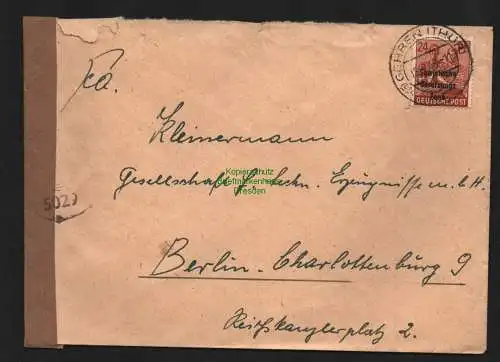 GEHREN (THÜR)
24
Sowjetische
Besatzungs
Zone
DEUTSCHE POST
Fa.
Kleinermann
Kopierschutz
Briefmarkenhaus
Dresden
Gesellschaft f. techn. Erzeugnisse m.b.H.
5027
Berlin-Charlottenburg 9
Reichskanzlerplatz 2.